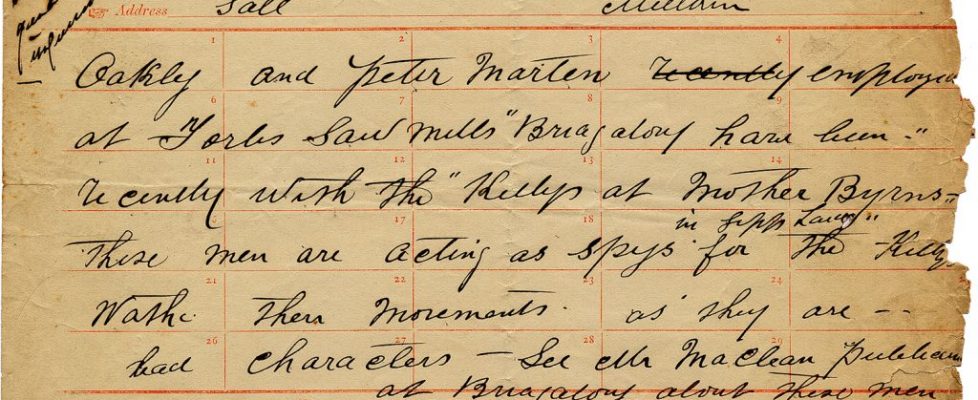 Address Sale
Oakly and Peter Marten recently employed
at Forbs Saw Mills "Briagalong have been"
recently with the "Kellys at Mother Byrns"
in Gipps Land"
These men are acting as spys for the Kellys
Watch their movements. as they are --
bad characters - See Mr Maclean Publican
at Briagalong about these men